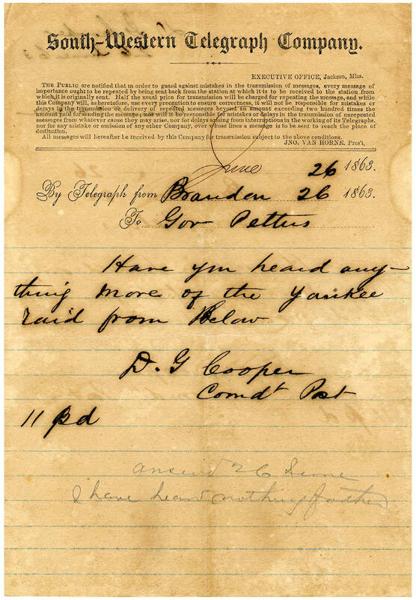 South-Western Telegraph Company.
EXECUTIVE OFFICE, Jackson, Miss.
THE PUBLIC are notified that in order to guard against mistakes in the transmission of messages, every message of
importance ought to be repeated by being sent back from the station at which it is to be received to the station from
which it is originally sent. Half the usual price for transmission will be charged for repeating the message, and while
this Company will, as heretofore, use every precaution to ensure correctness, it will not be responsible for mistakes or
delays in the transmission or delivery of repeated messages beyond an amount exceeding two hundred times the
amount paid for sending the message; nor will it be responsible for mistakes or delays in the transmission of unrepeated
messages from whatever cause they may arise, nor for delays arising from interruptions in the working of its Telegraphs
nor for any mistake or omission of any other Company, over whose lines a message is to be sent to reach the place of
destination.
All messages will hereafter be received by this Company for transmission subject to the above conditions.
JNO. VAN HORNE, Pres't.
June 26 1863.
By Telegraph from Brandon 26 1863.
To Gov Pettus
Have you heard any-
thing more of the Yankee
raid from Below
D. G Cooper
Comdt Post
11 pd
answd 26 June
I have heard nothing further